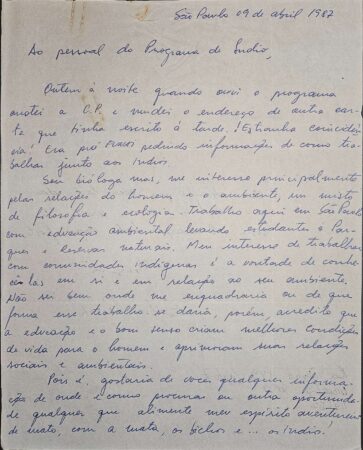 São Paulo 09 de abril 1987
Ao pessoal do Programa de Índio,
Ontem à noite quando ouvi o programa
anotei a C.P. e mudei o endereço de outra car-
ta que tinha escrito à tarde. Estranha coincidên-
cia! Era pró FUNAI pedindo informações de como tra-
balhar junto aos índios.
Sou bióloga mas, me interesso principalmente
pelas relações do homem e o ambiente, um misto
de filosofia e ecologia. Trabalho aqui em São Paulo
com educação ambiental levando estudantes à Par-
ques e reservas naturais. Meu interesse de trabalhar
com comunidades indígenas é a vontade de conhe-
cê-las em si e em relação ao seu ambiente.
Não sei bem onde me enquadraria ou de que
forma esse trabalho se daria, porém, acredito que
a educação e o bom senso criam melhores condições
de vida para o homem e aprimoram suas relações
sociais e ambientais.
Pois é, gostaria de vocês qualquer informa-
ção de onde e como procurar ou outra oportunidade
de qualquer que alimente meu espírito aventureiro
de mato, com a mata, os bichos e... os índios!